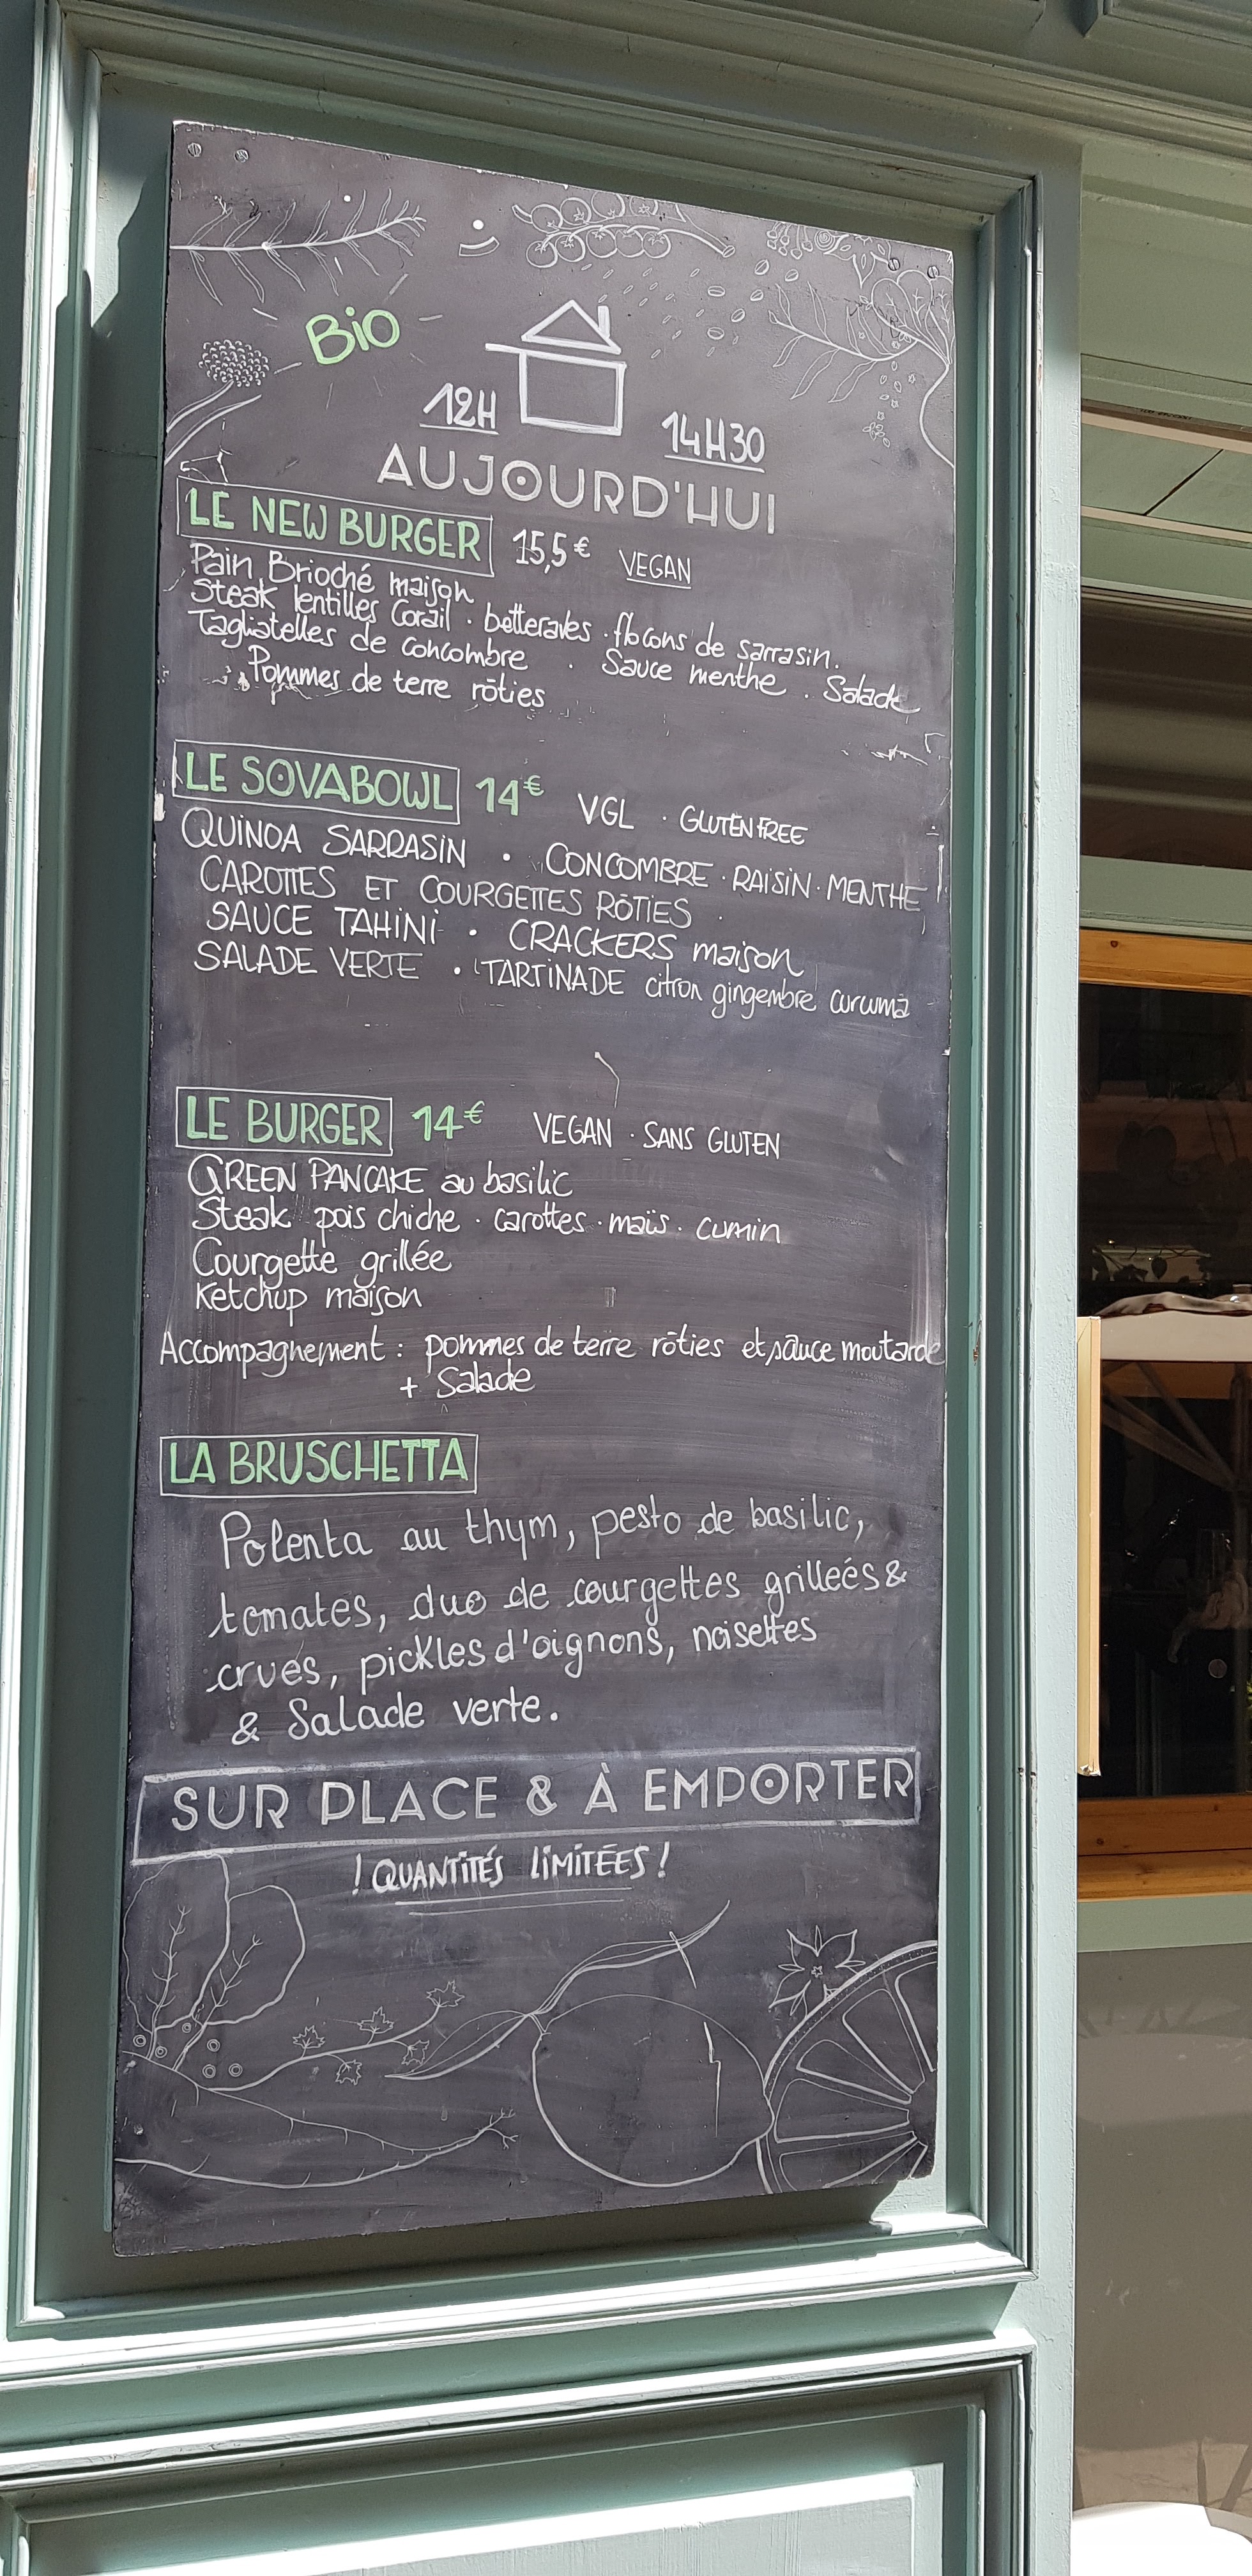 Bio
12H 14H30
AUJOURD'HUI
LE NEW BURGER 15,5€ VEGAN
Pain Brioché maison
Steak lentilles Corail · betteraves · flocons de sarrasin.
Tagliatelles de concombre · Sauce menthe . Salade
Pommes de terre rôties
LE SOVABOWL 14€ VGL · GLUTEN FREE
QUINOA SARRASIN · CONCOMBRE · RAISIN · MENTHE
CAROTTES ET COURGETTES RÔTIES .
SAUCE TAHINI · CRACKERS maison
SALADE VERTE · TARTINADE citron gingembre curcuma
LE BURGER 14€ VEGAN · SANS GLUTEN
GREEN PANCAKE au basilic
Steak pois chiche · carottes · maïs · cumin
Courgette grillée
Ketchup maison
Accompagnement : pommes de terre rôties et sauce moutarde
+ Salade
LA BRUSCHETTA
Polenta au thym, pesto de basilic,
tomates, duo de courgettes grilleés &
crues, pickles d'oignons, noisettes
& Salade verte.
SUR PLACE & À EMPORTER
! QUANTITÉS LIMITÉES !